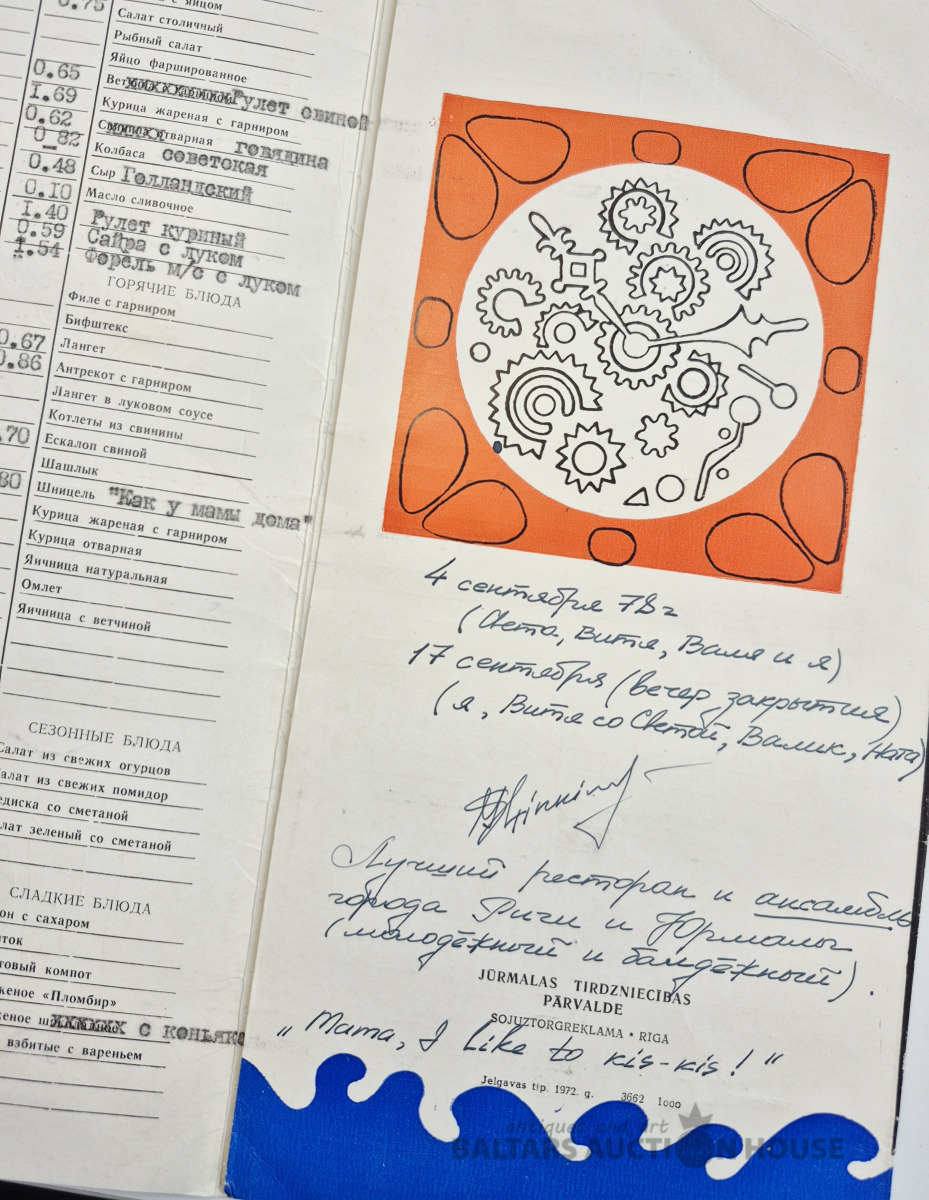 0.75
с яйцом
Салат столичный
Рыбный салат
Яйцо фаршированное
0.65 Рулет свиной
1.69 Курица жареная с гарниром
0.62 отварная говядина
0_82 Колбаса советская
0.48 Сыр Голландский
0.10 Масло сливочное
1.40 Рулет куриный
0.59 Сайра с луком
1.54 Форель м/с с луком
ГОРЯЧИЕ БЛЮДА
Филе с гарниром
Бифштекс
0.67 Лангет
0.86 Антрекот с гарниром
Лангет в луковом соусе
Котлеты из свинины
.70 Ескалоп свиной
Шашлык
80 Шницель "Как у мамы дома"
Курица жареная с гарниром
Курица отварная
Яичница натуральная
Омлет
Яичница с ветчиной
СЕЗОННЫЕ БЛЮДА
Салат из свежих огурцов
алат из свежих помидор
едиска со сметаной
лат зеленый со сметаной
СЛАДКИЕ БЛЮДА
он с сахаром
ток
товый компот
женое «Пломбир»
женое с коньяко
взбитые с вареньем
4 сентября 78 г
(Света, Витя, Валя и я)
17 сентября (вечер закрытия)
(я, Витя со Светой, Валик, Ната)
Лучший ресторан и ансамбль
города Риги и Юрмалы
(молодёжный и балдёжный).
JŪRMALAS TIRDZNIECĪBAS
PĀRVALDE
SOJUZTORGREKLAMA • RĪGA
„Mama, I like to kis-kis!“
Jelgavas tip. 1972. g. 3662 1000
antiques and art
BALTARS AUCTION HOUSE